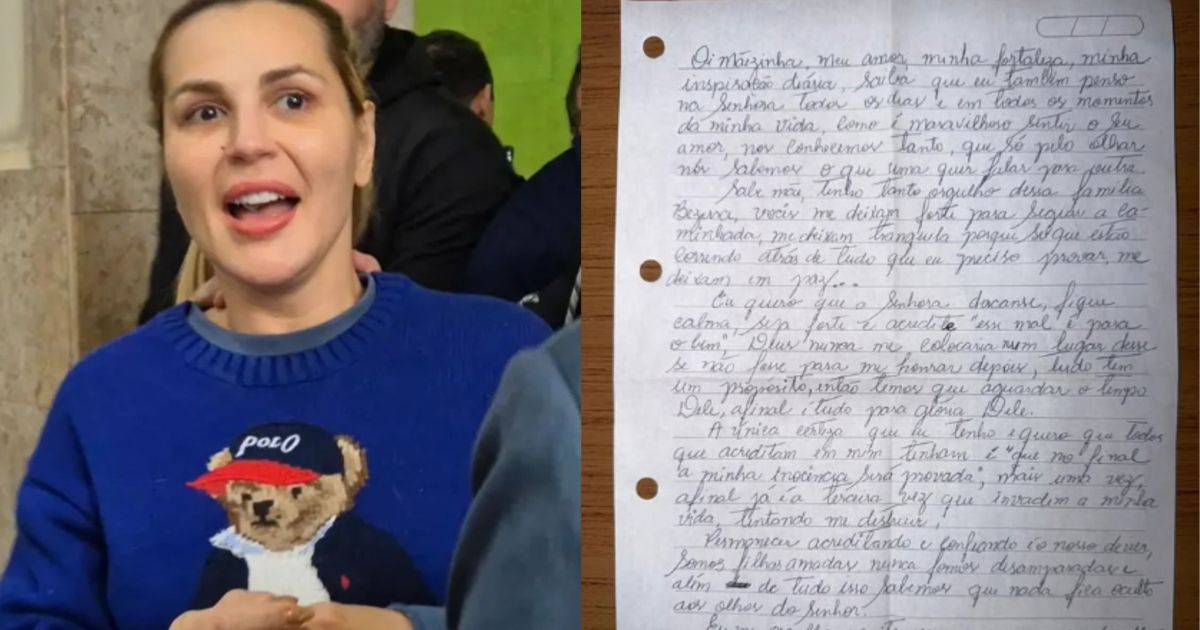 POLO
Oi Mãizinha, meu amor, minha fortaleza, minha
inspiração diária, saiba que eu também penso
na Senhora todos os dias e em todos os momentos
da minha vida, como é maravilhoso sentir o seu
amor, nos conhecemos tanto, que só pelo olhar
nós sabemos o que uma quer falar para outra.
Sabe mãe, tenho tanto orgulho dessa família
Bezerra, vocês me deixam forte para seguir a ca-
minhada, me deixam tranquila porque sei que estão
correndo atrás de tudo que eu preciso provar, me
deixam em paz...
Eu quero que a Senhora dscanse, fique
calma, seja forte e acredite "esse mal é para
o bem", Deus nunca me colocaria num lugar desse
se não fosse para me honrar depois, tudo tem
um propósito, então temos que aguardar o tempo
Dele, afinal é tudo para glória Dele.
A única certeza que eu tenho e quero que todos
que acreditam em mim tenham é "que no final
a minha inocência será provada", mais uma vez,
afinal já é a terceira vez que invadem a minha
vida, tentando me destruir,
Permanecer acreditando e confiando é o nosso dever,
somos filhas amadas nunca fomos desamparadas e
além de tudo isso sabemos que nada fica oculto
aos olhos do Senhor.